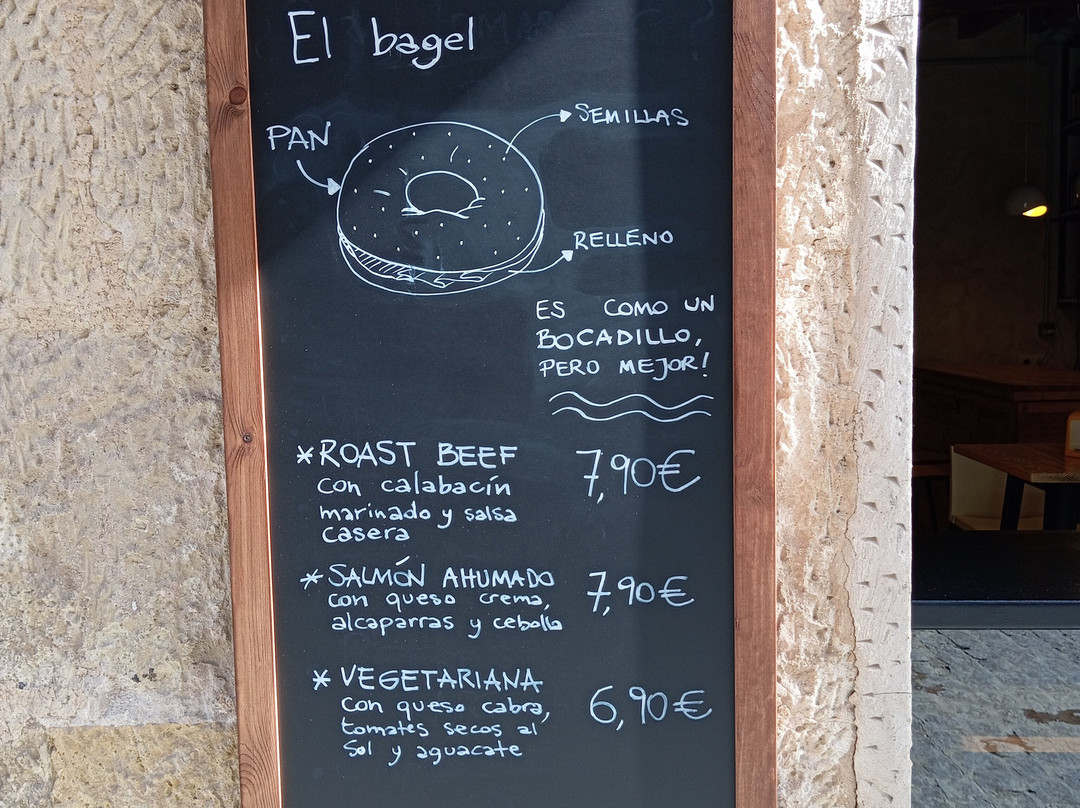 El bagel
PAN
SEMILLAS
RELLENO
ES COMO UN
BOCADILLO,
PERO MEJOR!
*ROAST BEEF 7,90€
con calabacín
marinado y salsa
casera
*SALMÓN AHUMADO 7,90€
con queso crema,
alcaparras y cebolla
*VEGETARIANA 6,90€
con queso cabra,
tomates secos al
sol y aguacate